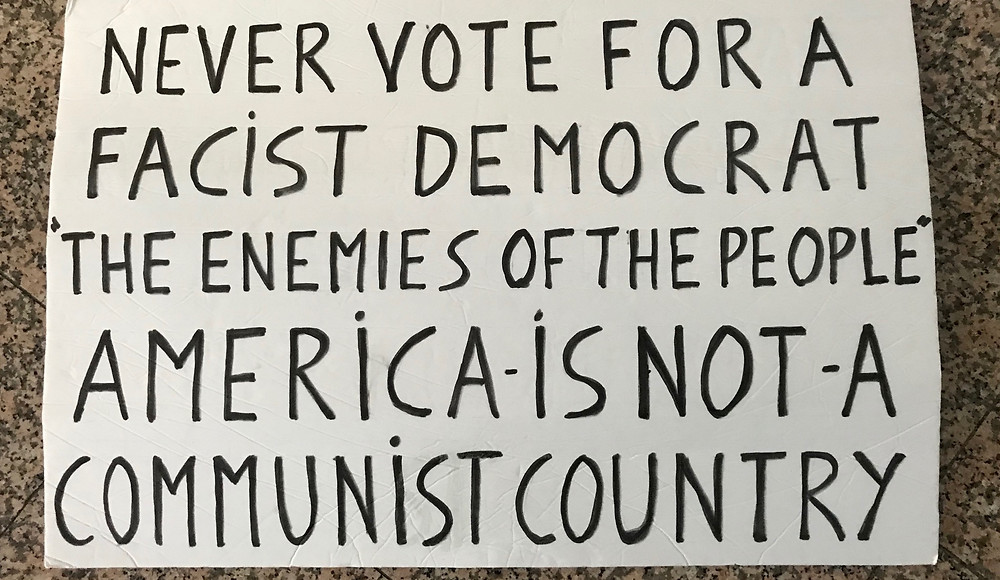 NEVER VOTE FOR A
FACiST DEMOCRAT
"THE ENEMIES OF THE PEOPLE"
AMERiCA-iS NOT-A
COMMUNiST COUNTRY